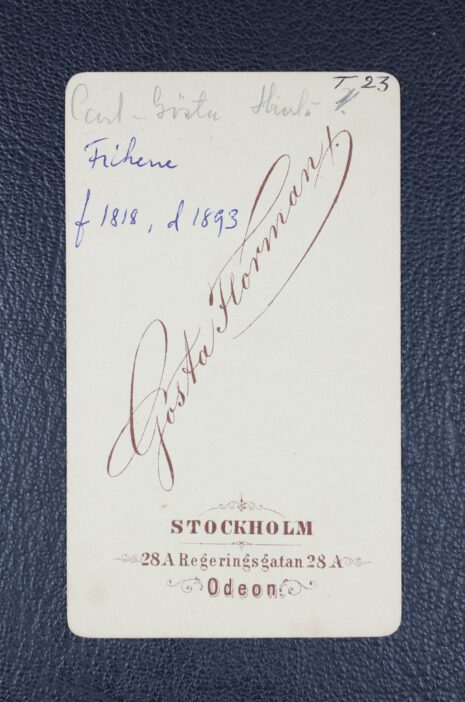 T 23
Carl-Gösta
Friherre
f 1818, d 1893
Gösta Florman
STOCKHOLM
28 A Regeringsgatan 28 A
Odeon.